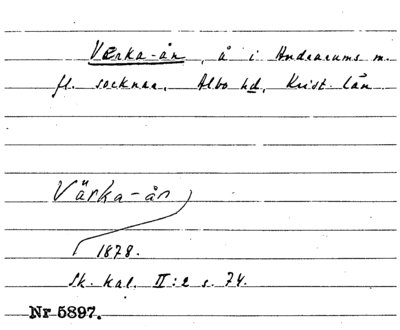 Verka-ån, å i Andrarums m.
fl. socknar, Albo hd, Krist. län
Värka-ån
1878.
Sk. Kal. II:2 s. 74.
Nr 5897.